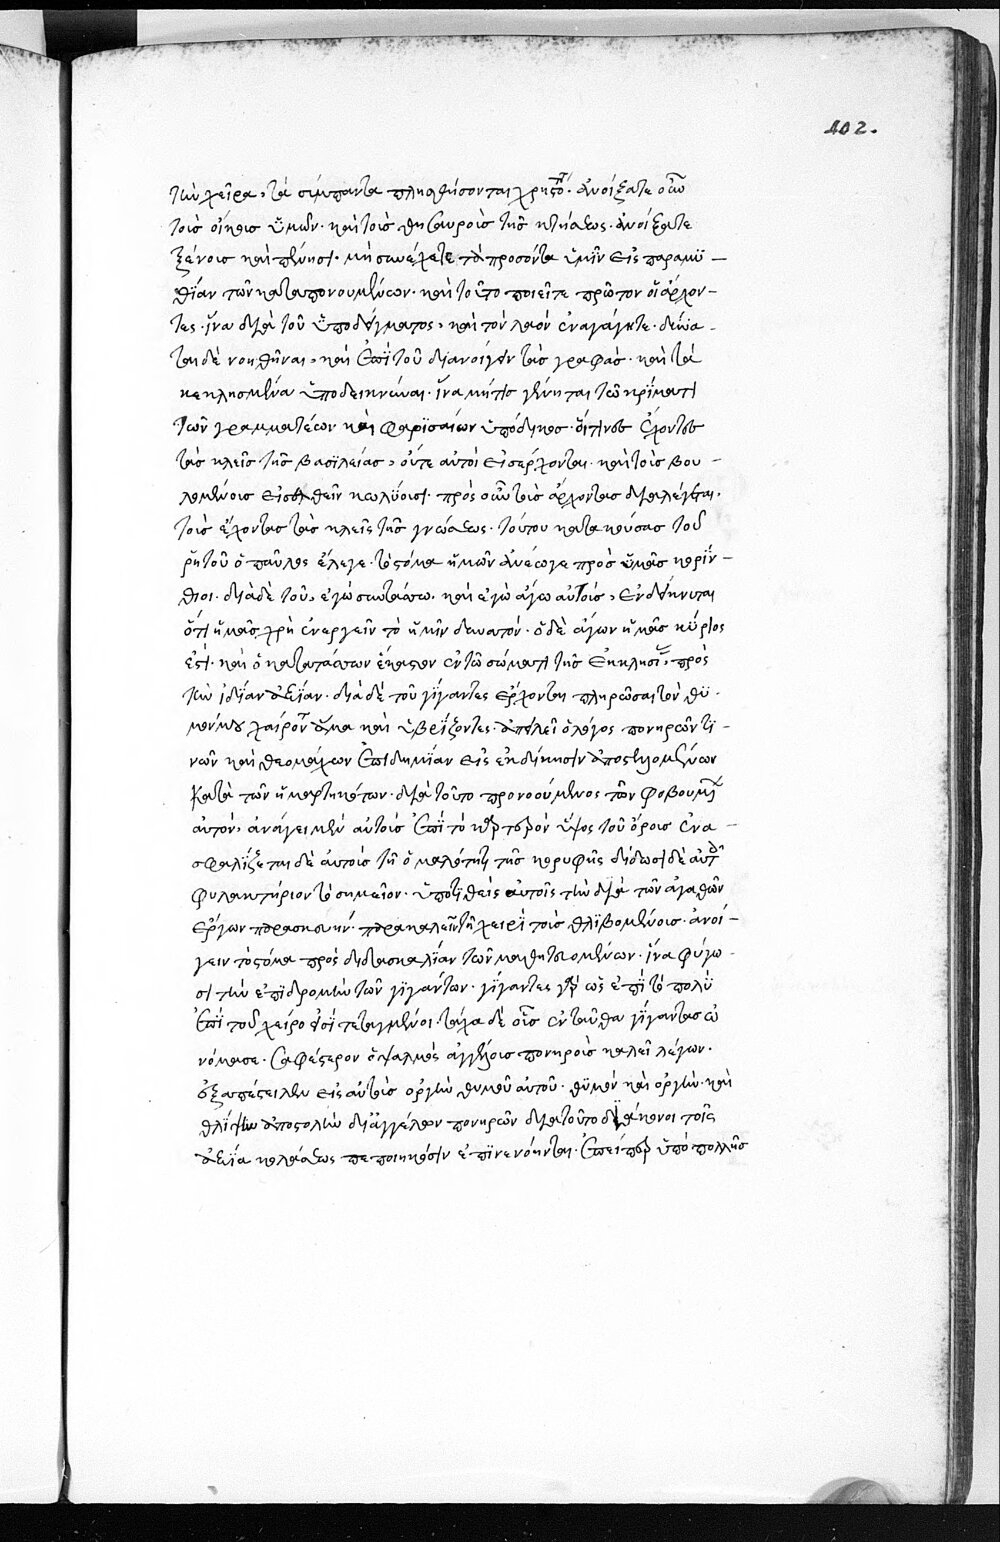 402.
τὴν χεῖρα, τὰ σύμπαντα πλησθήσονται χρηστότ. ἀνοίξατε οὖν
τοὺς οἴκους ὑμῶν. καὶ τοὺς θησαυροὺς τῆς κτήσεως. ἀνοίξατε
ξένοις καὶ πένησι. μὴ συνέχετε τὰ προσόντα ὑμῖν εἰς παραμυ-
θίαν τῶν καταπονουμένων. καὶ τοῦτο ποιεῖτε πρῶτον οἱ ἄρχον-
τες. ἵνα διὰ τοῦ ὑποδείγματος, καὶ τὸν λαὸν ἐναγάγητε. δύνα-
ται δὲ νοηθῆναι, καὶ ἐπὶ τοῦ διανοίγειν τὰς γραφάς. καὶ τὰ
κεκλησμένα ὑποδεικνύναι. ἵνα μήτις γένηται τῶ κρίματι
τῶν γραμματέων καὶ φαρισαίων ὑπόδικος. οἵτινες ἔχοντες
τὰς κλεῖς τῆς βασιλείας, οὔτε αὐτοὶ εἰσέρχονται. καὶ τοὺς βου-
λομένους εἰσελθεῖν κωλύουσι. πρὸς οὖν τοὺς ἄρχοντας διαλέγεται.
τοὺς ἔχοντας τὰς κλεῖς τῆς γνώσεως. τούτου κατακούσας τοῦ
ῥητοῦ ὁ παῦλος ἔλεγε. τὸ στόμα ἡμῶν ἀνέωγε πρὸς ὑμᾶς κορίν-
θιοι. διὰ δὲ τοῦ, ἐγὼ συντάσσω. καὶ ἐγὼ ἄγω αὐτούς, ἐνδείκνυται
ὅτι ἡμᾶς χρὴ ἐνεργεῖν τὸ ἡμῖν δυνατόν. ὁ δὲ ἄγων ἡμᾶς κύριος
ἐστί. καὶ ὁ κατατάσσων ἕκαστον ἐν τῶ σώματι τῆς ἐκκλησί, πρὸς
τὴν ἰδίαν ἀξίαν. διὰ δὲ τοῦ γίγαντες ἔρχονται πληρῶσαι τὸν θυ-
μόν μου χαίροντ ἅμα καὶ ὑβρίζοντες. ἀπειλεῖ ὁ λόγος πονηρῶν τι-
νῶν καὶ θεομάχων ἐπιδημίαν εἰς ἐκδίκησιν ἀποστελλομένων
κατὰ τῶν ἡμαρτηκότων. διὰ τοῦτο προνοούμενος τῶν φοβουμέν
αὐτόν, ἀνάγει μὲν αὐτοὺς ἐπὶ τὸ καρτερὸν ὕψος τοῦ ὄρους ἐνα-
σφαλίζεται δὲ αὐτοὺς τῇ ὁμαλότητι τῆς κορυφῆς δίδωσι δὲ αὐτοῖς
φυλακτήριον τὸ σημεῖον. ὑποτιθεὶς αὐτοῖς τὴν διὰ τῶν ἀγαθῶν
ἔργων παρασκευήν. παρακαλεῖν τῇ χειρὶ τοὺς θλιβομένους. ἀνοί-
γειν τὸ στόμα πρὸς διδασκαλίαν τῶν μαθητευομένων. ἵνα φύγω-
σι τὴν ἐπιδρομὴν τῶν γιγάντων. γίγαντες γὰρ ὡς ἐπὶ τὸ πολὺ
ἐπὶ τοῦ χείρονός εἰσι τεταγμένοι. τάχα δὲ οὓς ἐνταῦθα γίγαντας ὠ
νόμασε. σαφέστερον ὁ ψαλμὸς ἀγγέλους πονηροὺς καλεῖ λέγων.
ἐξαπέστειλεν εἰς αὐτοὺς ὀργὴν θυμοῦ αὐτοῦ. θυμὸν καὶ ὀργὴν. καὶ
θλίψιν ἀποστολὴν δι' ἀγγέλων πονηρῶν διὰ τοῦτο διάκονοι τοῖς
ἄξια κολάσεως πεποιηκόσιν ἐπινενόηνται. ἐπείπερ ὑπὸ πολλῆς